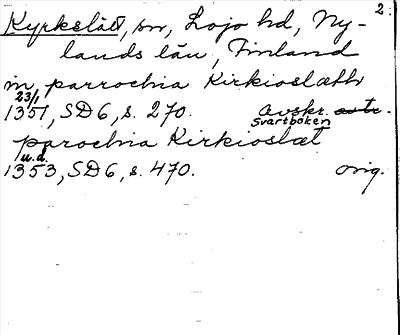 2.
Kyrkslätt, sn, Lojo hd, Ny-
lands län, Finland
in parrochia Kirkioslæth
23/1
1351, SD 6, s. 270. avskr.
Svartboken
parochia Kirkioslæt
u.d.
1353, SD 6, s. 470. orig.